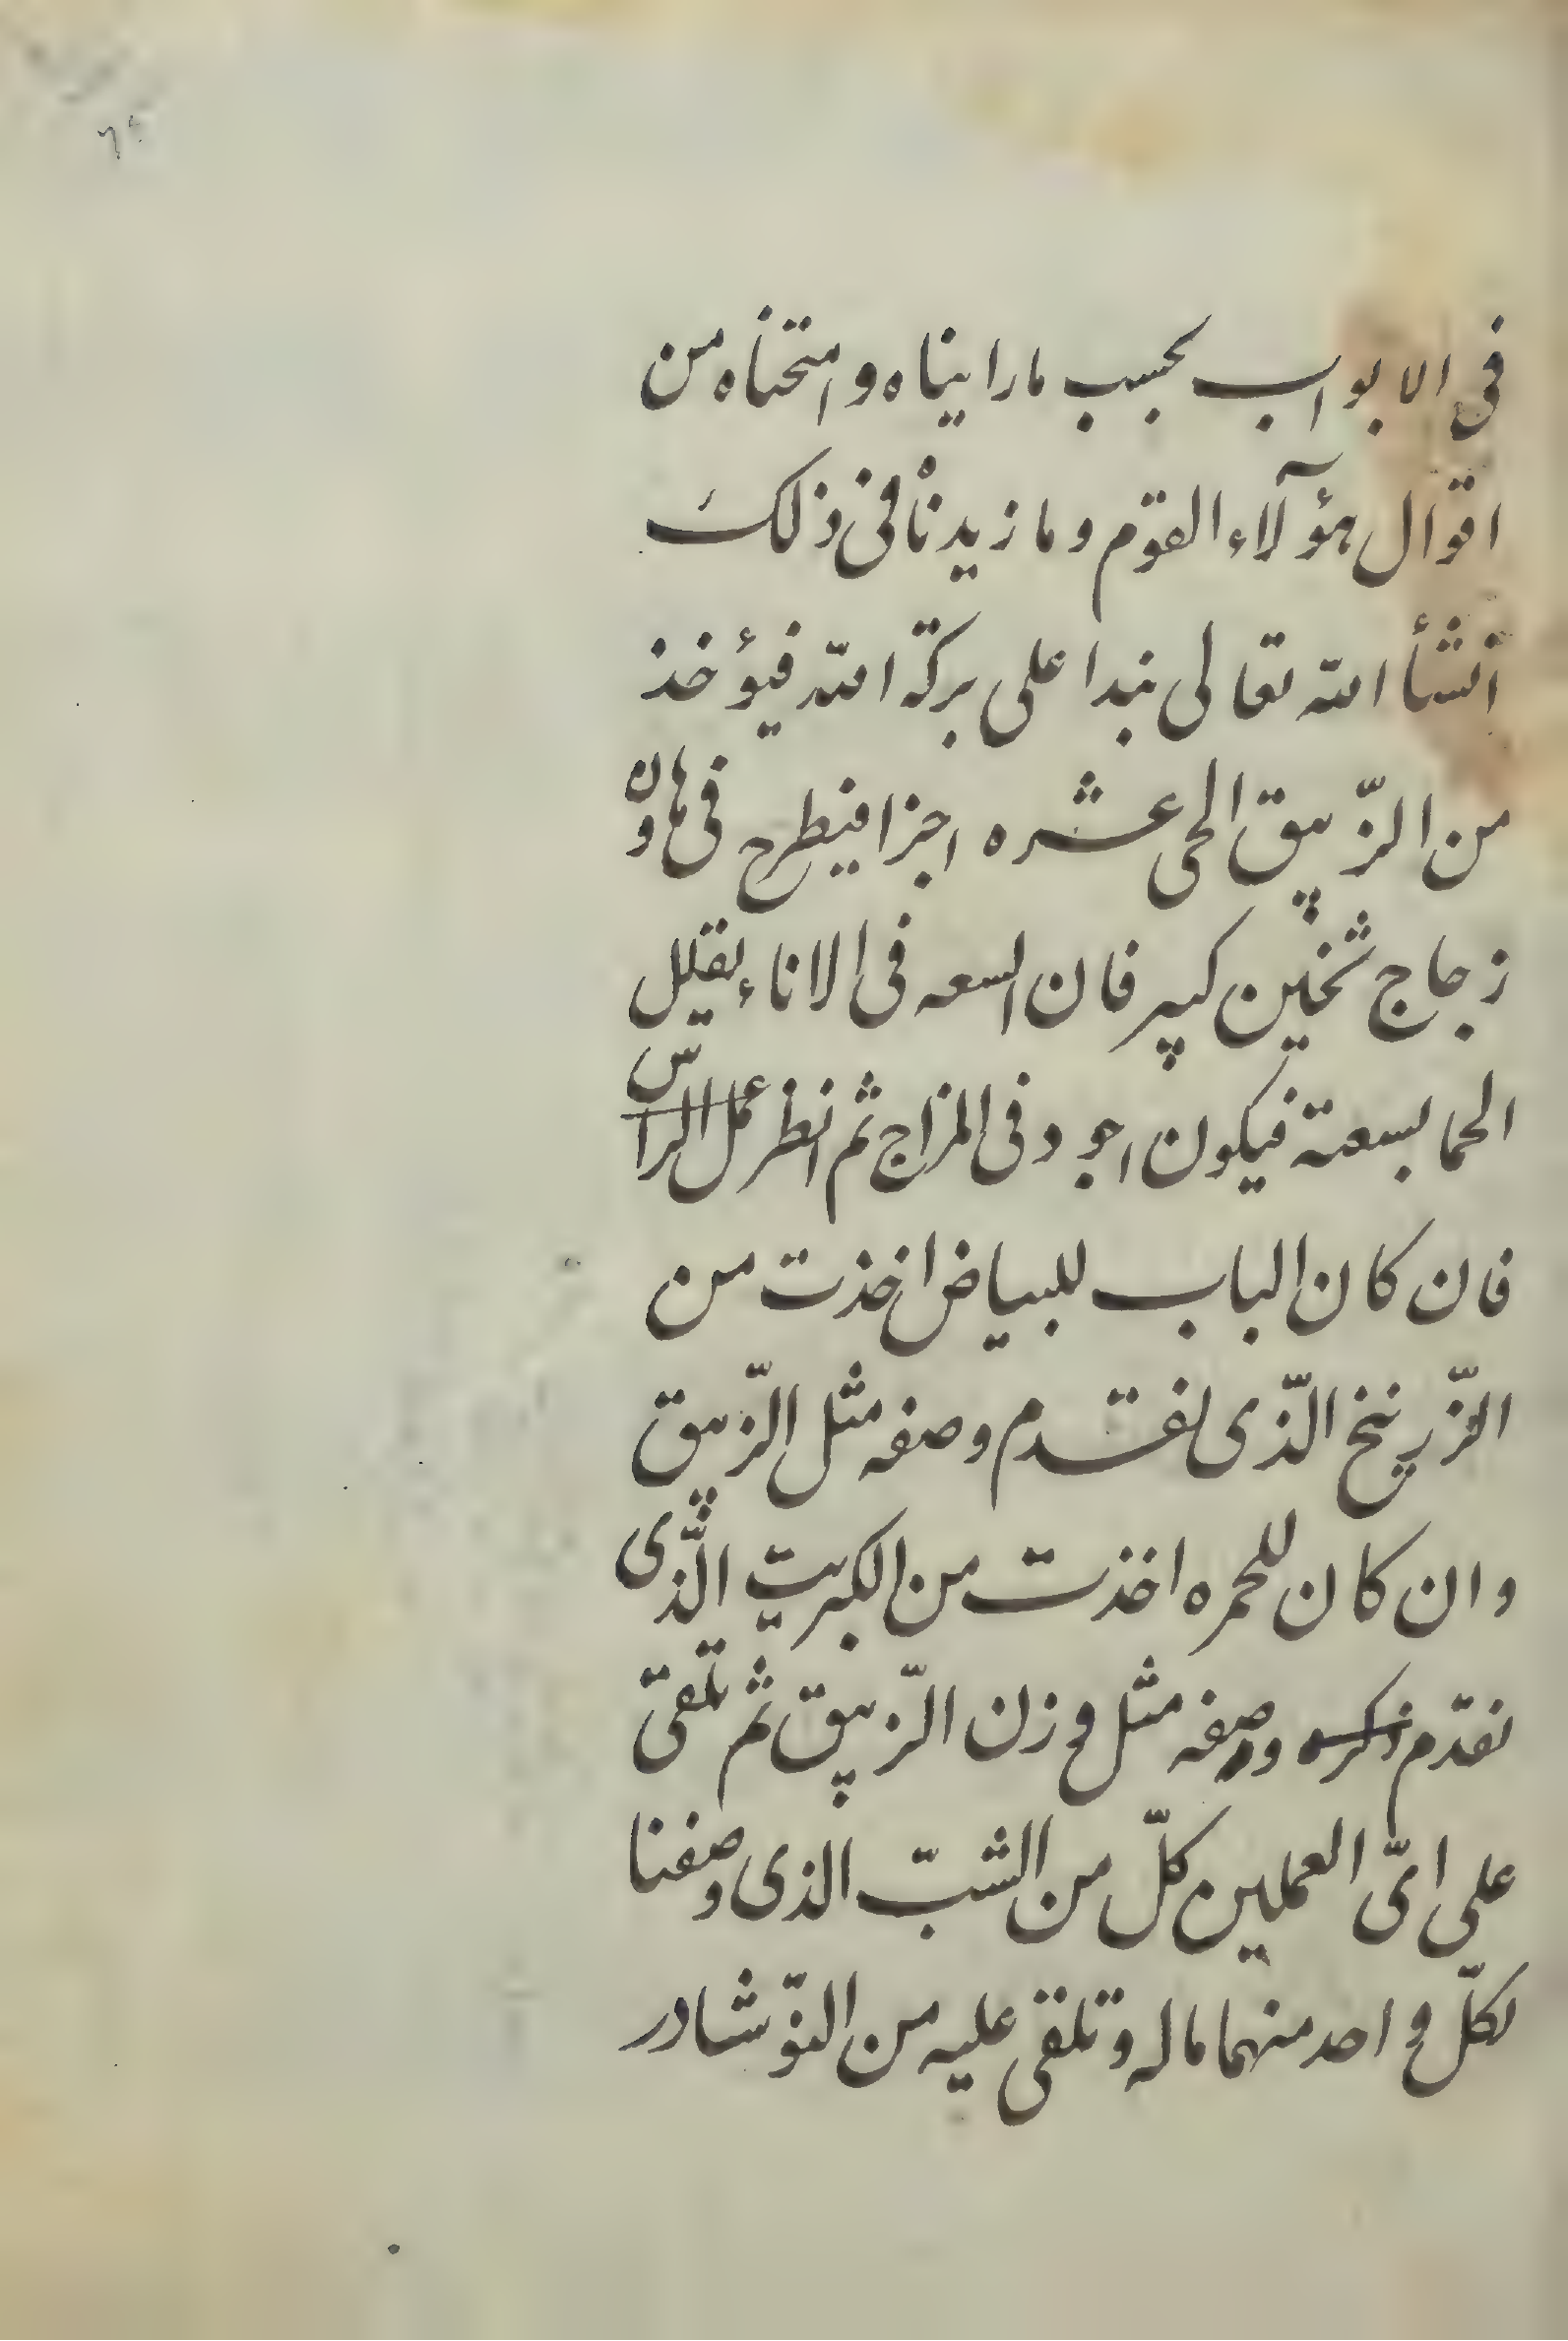 في الابواب بحسب ما راييناه وامتحناه من
اقوال هؤلآء القوم وما زيدناه في ذلك
انشأ الله تعالى نبدا على بركة الله فيؤخذ
من الزّيبق الحي عشره اجزا فيطرح في هاون
زجاج ثخين كبير فان السعه في الاناء يقلل
الحما بسعته فيكون اجود في المزاج ثم انظر عمل الراس
فان كان الباب للبياض اخذت من
الزّرنيخ الّذى تقدم وصفه مثل الزّيبق
وان كان للحمره اخذت من الكبريت الّذى
تقدّم ذكره وصفه مثل وزن الزّيبق ثم تلقى
على اىّ العملين كلّ من الشبّ الذى وصفنا
لكلّ واحد منهما ماله وتلقى عليه من النوّشادر